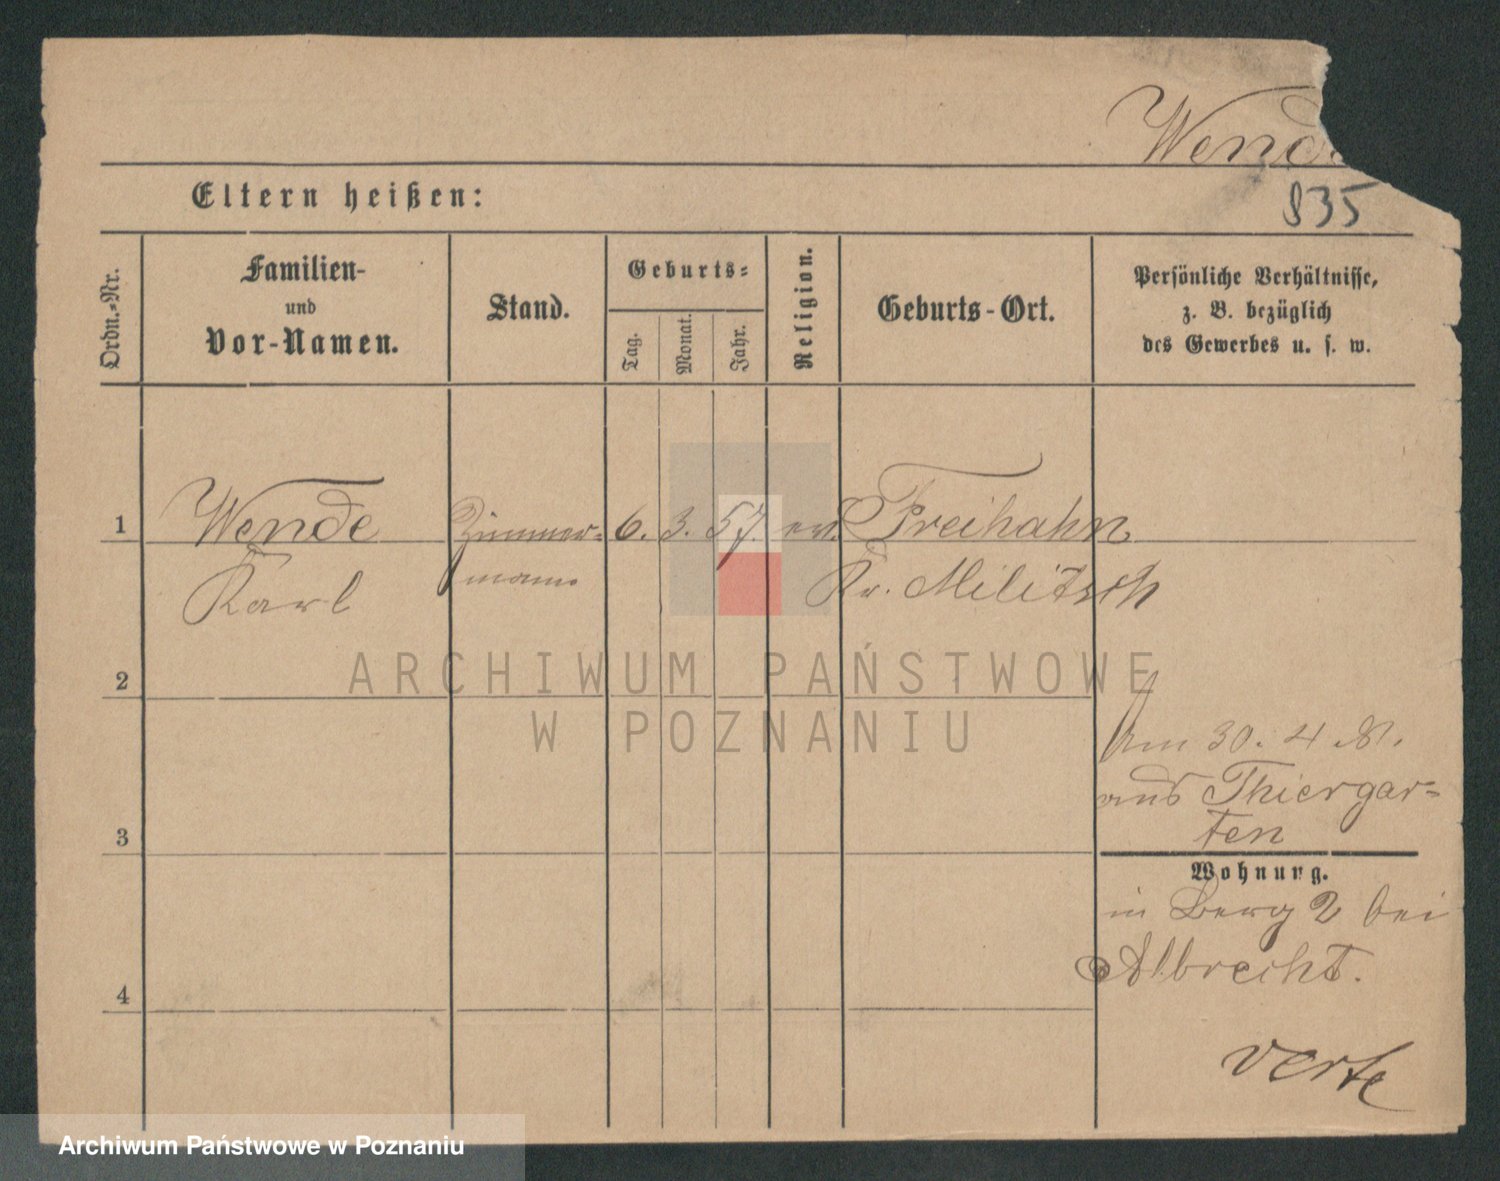 Wend
835
Eltern heißen:
Ordn.-Nr.
Familien-
und
Vor-Namen.
Stand.
Geburts-
Tag.
Monat.
Jahr.
Religion.
Geburts-Ort.
Persönliche Verhältnisse,
z. B. bezüglich
des Gewerbes u. s. w.
1
Wende
Karl
Zimmer=
mann
6. 3. 57. ev.
Freihahn
Kr. Militsch
2
Am 30. 4 81.
aus Thiergar=
ten
3
Wohnung.
in Berg 2 bei
Albrecht.
4
verte
ARCHIWUM PAŃSTWOWE
W POZNANIU
Archiwum Państwowe w Poznaniu